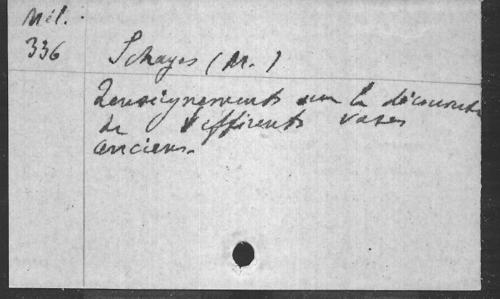 Mél.
336
Schayes (M.)
Renseignements sur la découverte
de différents vases
anciens.